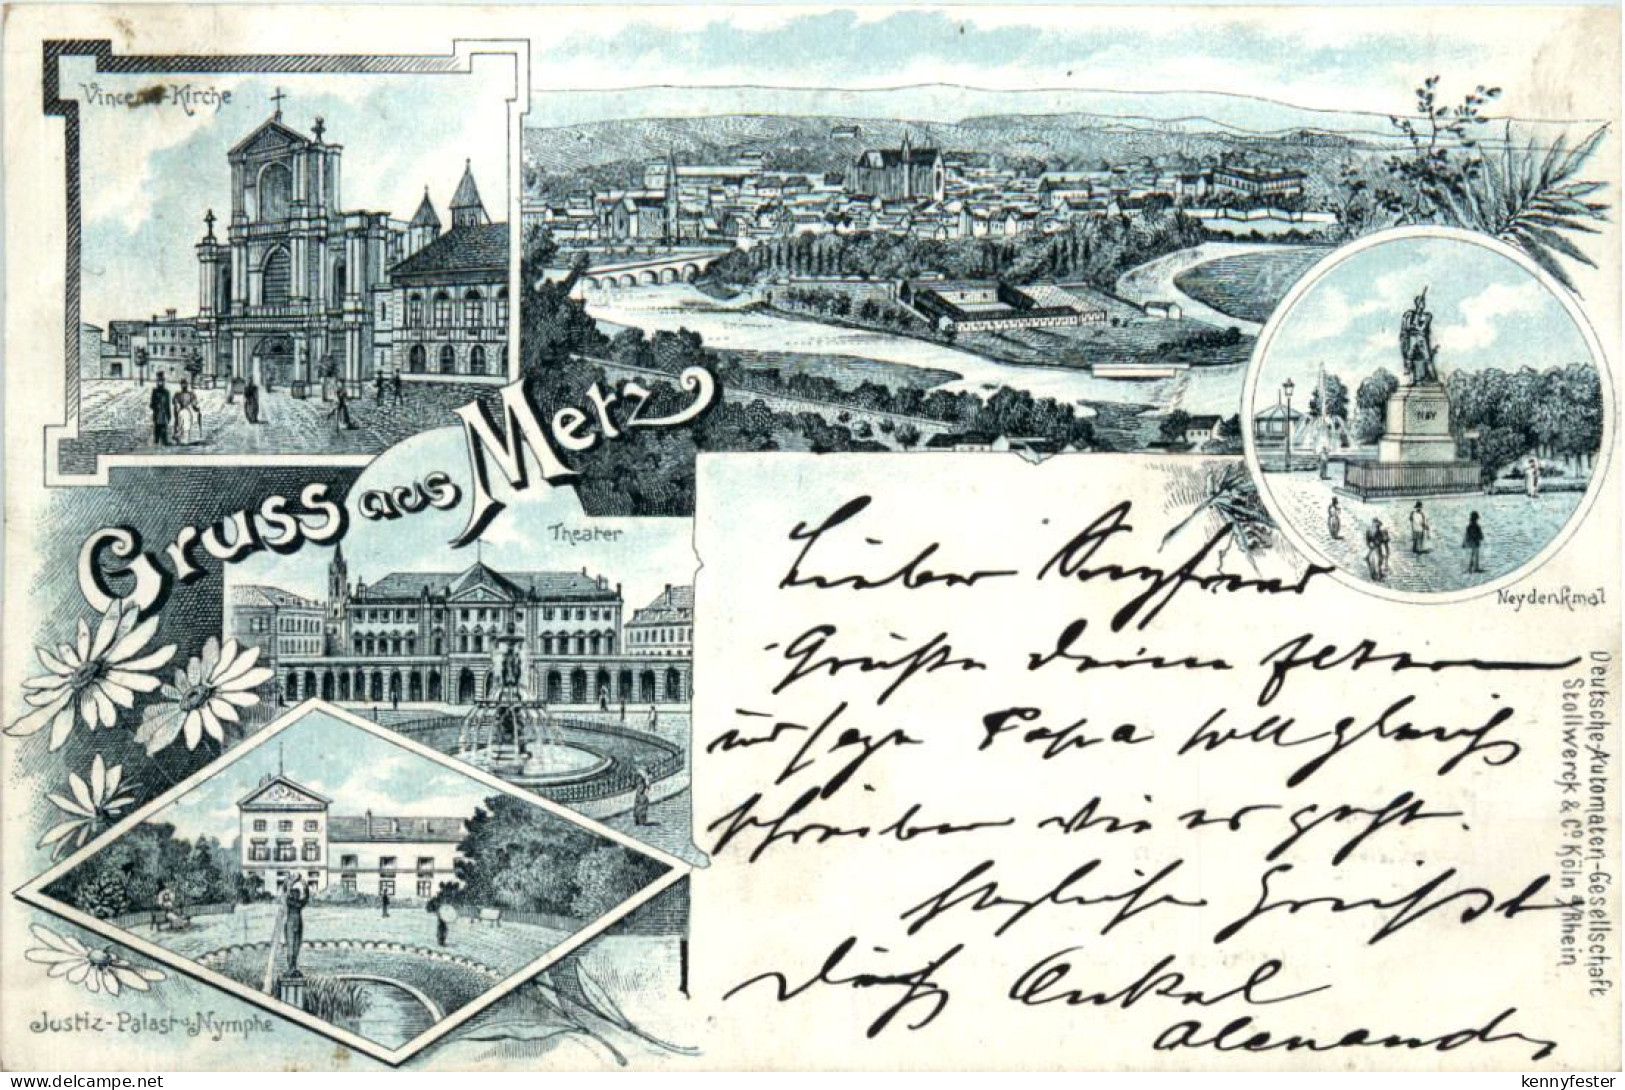 Vincenz-Kirche
Gruss aus Metz
Theater
NEY
Neydenkmal
Justiz-Palast u. Nymphe
Deutsche-Automaten-Gesellschaft
Stollwerck & Co Köln a/Rhein.
Lieber
Grüße deine Eltern
und sage Papa soll gleich
schreiben wie es geht.
Herzliche Grüßt
Dich Onkel
Alexander
delcampe.net
kennyfester